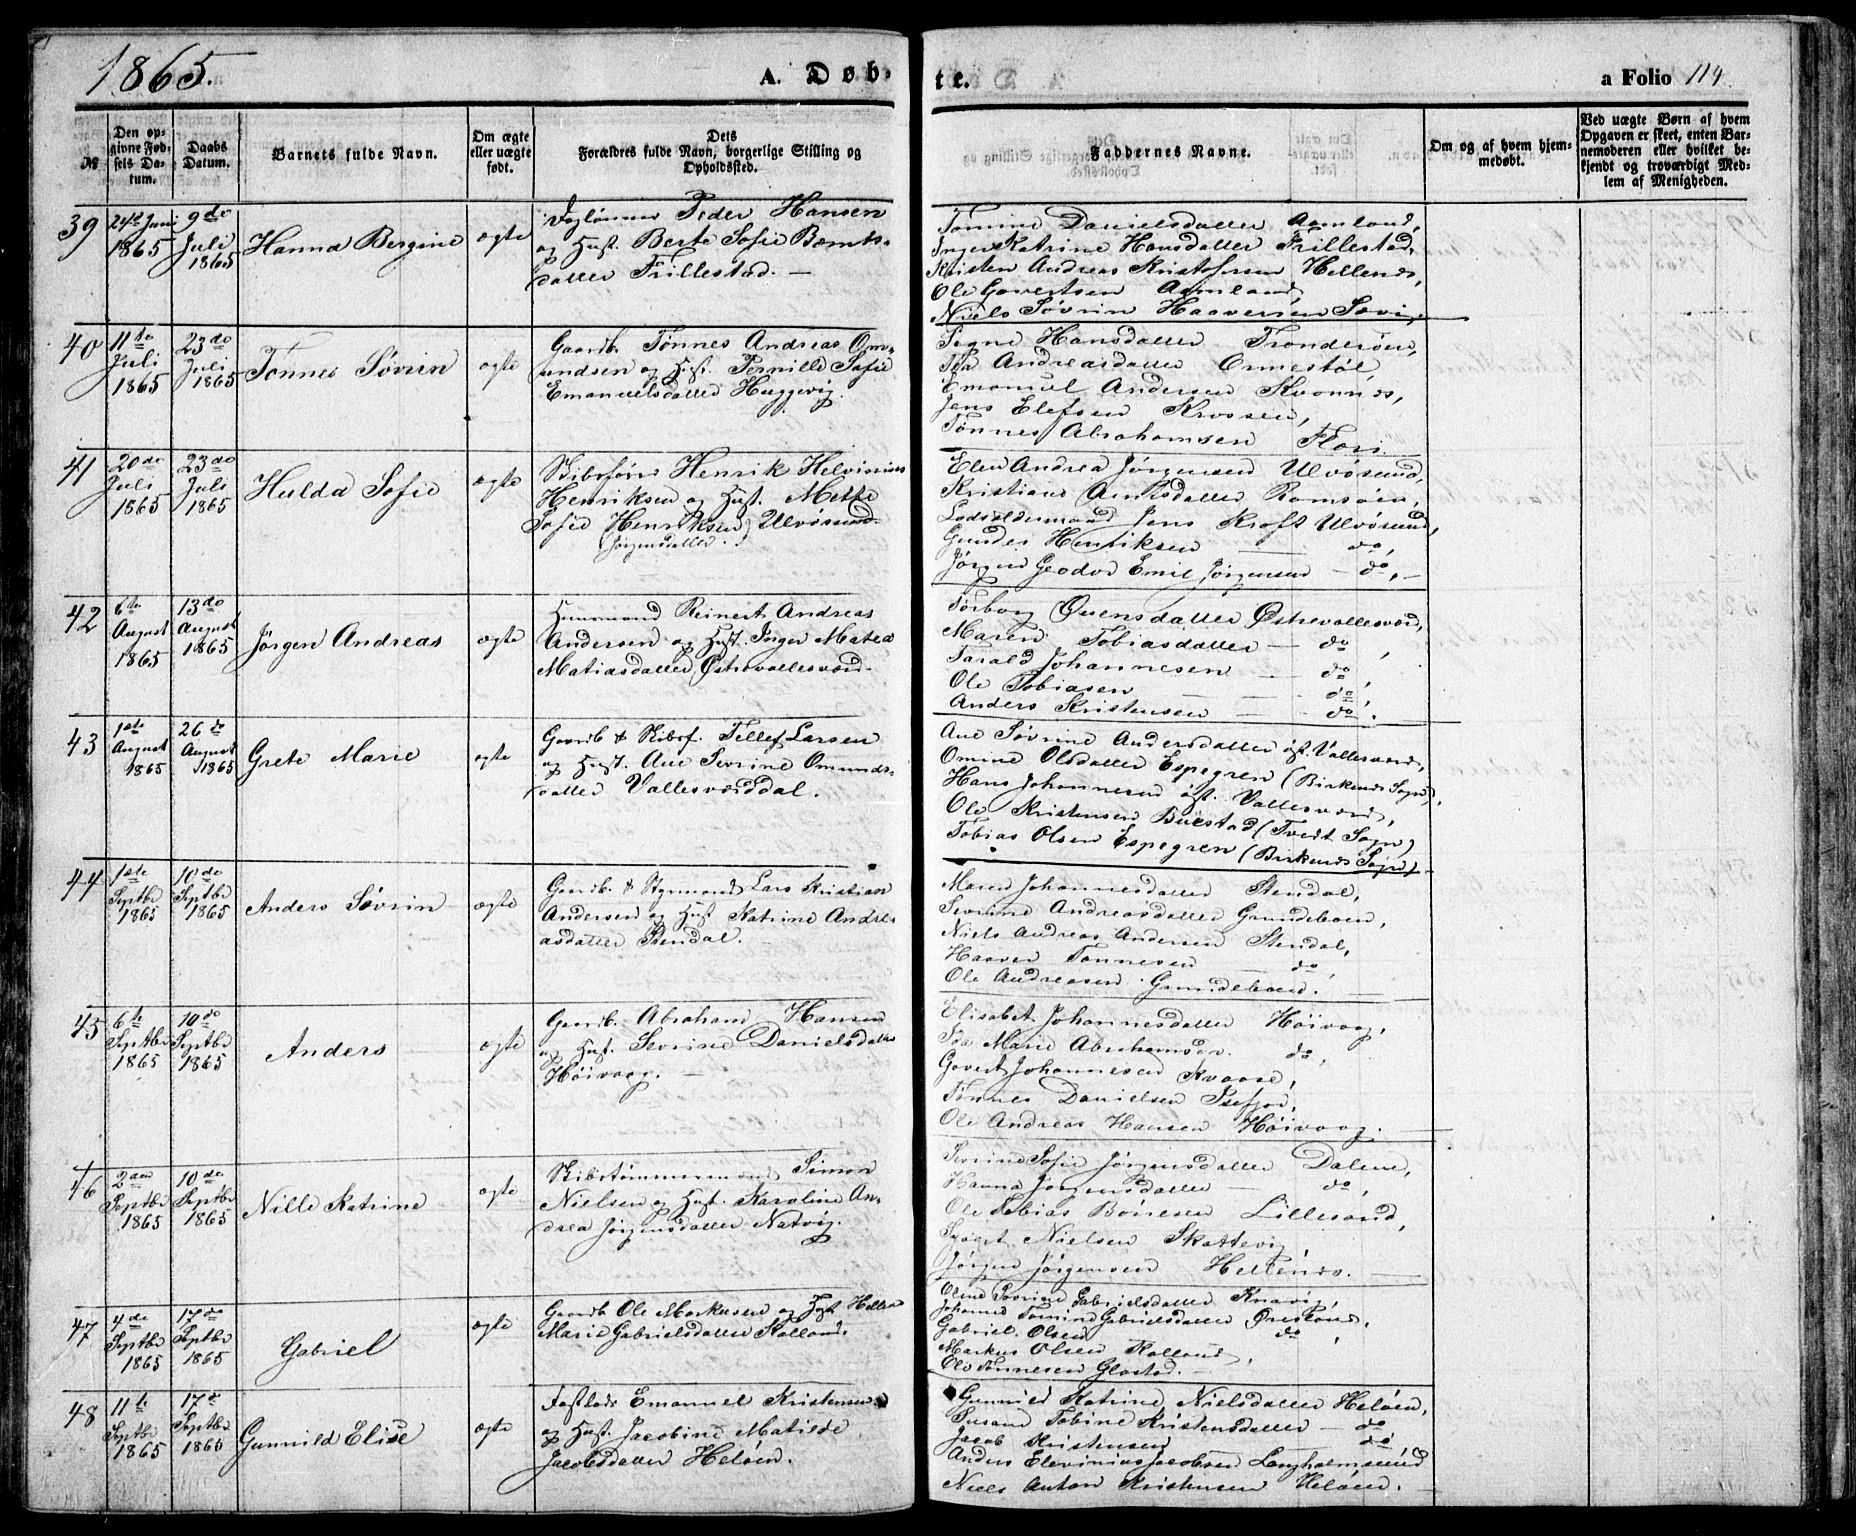 1865.
A. Døb-
te.
a Folio 114.
№
Den op-
givne Fød-
sels Da-
tum.
Daabs
Datum.
Barnets fulde Navn.
Om ægte
eller uægte
født.
Dets
Forældres fulde Navn, borgerlige Stilling og
Opholdssted.
Faddernes Navne.
Om og af hvem hjem-
medøbt.
Ved uægte Børn af hvem
Opgaven er skeet, enten Bar-
nemoderen eller hvilket be-
kjendt og troværdigt Med-
lem af Menigheden.
39
24de Juni
1865
9de
Juli
1865
Hanna Bergine
ægte
Peder Hansen
og Hust. Berte Sofie Bernts-
datter Trillestad. —
Tomine Danielsdatter Aamland,
Inger Katrine Hansdatter Trillestad,
Kristen Andreas Kristofersen Hellenes,
Ole Govertsen Aamland,
Niels Søvrin Haaversen
40
11te
Juli
1865
23de
Juli
1865
Tønnes Søvrin
ægte
Gaardb. Tønnes Andreas Om-
undsen og Hust. Pernille Sofie
Emanuelsdatter Huggevig.
Signe Hansdatter Trondesøen,
Ida Andreasdatter Ormestøl,
Emanuel Andersen Kvannes,
Jens Elefsen Krossen,
Tønnes Abrahamsen
41
20de
Juli
1865
23de
Juli
1865
Hulda Sofie
ægte
Skibsfører Henrik Helvinius
Henriksen og Hust. Mette
Sofie Henriksen, Ulvøsund
(Jørgensdatter.)
Elen Andrea Jørgensen Ulvøsund,
Kristiane Ramsøen,
Lodsoldermand Jens Kroft Ulvøsund,
Gunder Henriksen — do,
Jørgen Emil Jørgensen — do, —
42
6te
August
1865
13de
August
1865
Jørgen Andreas
ægte
Huusmand Reinert Andreas
Andersen og Hust. Inger Matea
Matiasdatter Østrevallesværd.
Torborg Østrevallesværd,
Maren Tobiasdatter — do,
Tarald Johannesen do,
Ole Tobiasen — do,
Anders Kristensen — do.
43
1ste
August
1865
26de
August
1865
Grete Marie
ægte
Gaardb & Skibsf. Tellef Larsen
og Hust. Ane Sevrine Omunds-
datter Vallesværddal.
Ane Søvrine Andersdatter øst. Vallesværd,
Omine Olsdatter Espegren (Birkenes Sogn),
Hans Johannesen øst. Vallesværd,
Ole Kristensen Buestad (Tvedt Sogn)
Tobias Olsen Espegren (Birkenes Sogn)
44
1ste
Septbr
1865
10de
Septbr
1865
Anders Søvrin
ægte
Gaardb. & Styrmand Lars Kristian
Andersen og Hust Katrine Andre-
asdatter Stendal.
Maren Johannesdatter Stendal,
Sevrine Andreasdatter Grundeboen,
Niels Andreas Andersen Stendal,
Haaver Tønnesen — do,
Ole Andreasen Grundeboen.
45
6te
Septbr
1865
10de
Septbr
1865
Anders
ægte
Gaardb. Abraham Hansen
og Hust. Sevrine Danielsdatter
Høivaag. —
Elisabet Johannesdatter Høivaag,
Ida Marie Abrahamsdr. do,
Govert Johannesen Kvaase,
Tønnes Danielsen Isefjær,
Ole Andreas Hansen Høivaag.
46
2den
Septbr
1865
10de
Septbr
1865
Nille Katrine
ægte
Skibstømmermand Simon
Nielsen og Hust. Karoline An-
drea Jørgensdatter Natvig.
Sevrine Sofie Jørgensdatter Dalene,
Hanna Jørgensdatter — do,
Ole Tobias Børresen Lillesand,
Nielsen Skottevig,
Jørgen Jørgensen Hellenes.
47
4de
Septbr
1865
17de
Septbr
1865
Gabriel
ægte
Gaardb Ole Markusen og Hust Hellene
Marie Gabrielsdatter Kalland.
Oline Sovrine Gabrielsdatter Knavig,
Johanne Tomine Gabrielsdatter Øresland,
Gabriel Olsen do,
Markus Olsen Kalland,
Ole Tønnesen Glastad.
48
11te
Septbr
1865
17de
Septbr
1865
Gunnild Elise
ægte
Fastlods Emanuel Kristensen
og Hust. Jacobine Matilde
Jacobsdatter Heløen.
Gunnild Katrine Nielsdatter Heløen,
Susane Tobine Kristensdatter — do
Jacob Kristensen do
Anders Elevinius Jacobsen Langholmsund
Niels Anton Kristensen Heløen.